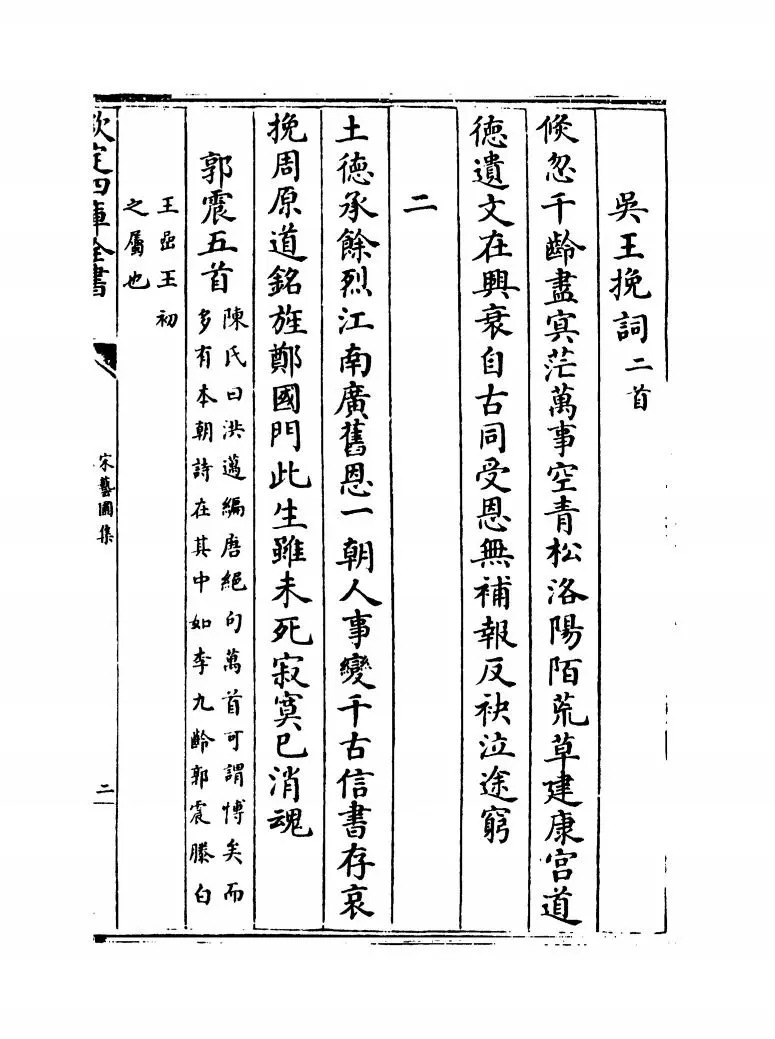 吳王挽詞二首
倐忽千齡盡冥茫萬事空青松洛陽陌荒草建康宫道
德遺文在興衰自古同受恩無補報反袂泣途窮
二
土德承餘烈江南廣舊恩一朝人事變千古信書存哀
挽周原道銘旌鄭國門此生雖未死寂寞已消魂
郭震五首
陳氏曰洪邁編唐絕句萬首可謂博矣而
多有本朝詩在其中如李九齡郭震滕白
王嵒王初
之屬也
欽定四庫全書
宋藝圃集
二